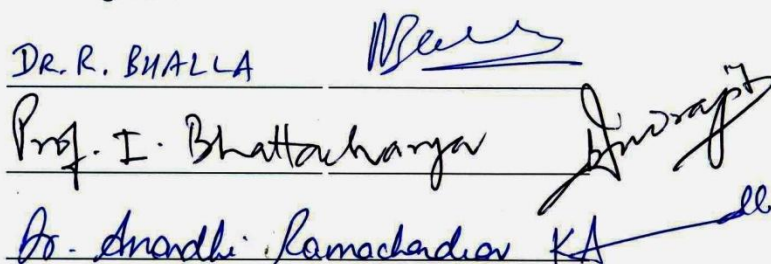 DR. R. BHALLA
Prof. I. Bhattacharya
Dr. Anandhi Ramachandran KA